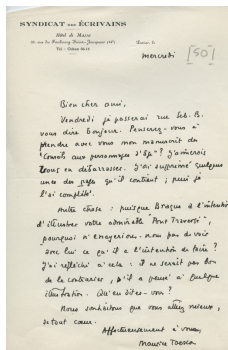 SYNDICAT DES ÉCRIVAINS
Hôtel de Massa
38, rue du Faubourg Saint-Jacques (14e)
Tél.: Odéon
Paris, le
mercredi
[50]
Bien cher ami,
Vendredi je passerai rue Séb. B.
vous dire bonjour. Penserez-vous à
prendre avec vous mon manuscrit de
"Conseils aux personnages d'âge"? J'aimerais
vous en débarrasser. J'ai supprimé quelques
unes des qu'il contient; puis je
l'ai complété.
Autre chose: puisque Braque a l'intention
d'illustrer votre admirable "Pont Traversé",
pourquoi n'essayerions-nous pas de voir
avec lui ce qu'il a l'intention de faire?
J'ai réfléchi à cela: il ne serait pas bon
de le contrarier, s'il a pensé à quelque
illustration. Qu'en dites-vous?
Nous souhaitons que vous alliez mieux,
de tout cœur.
Affectueusement à vous,
Maurice Toesca